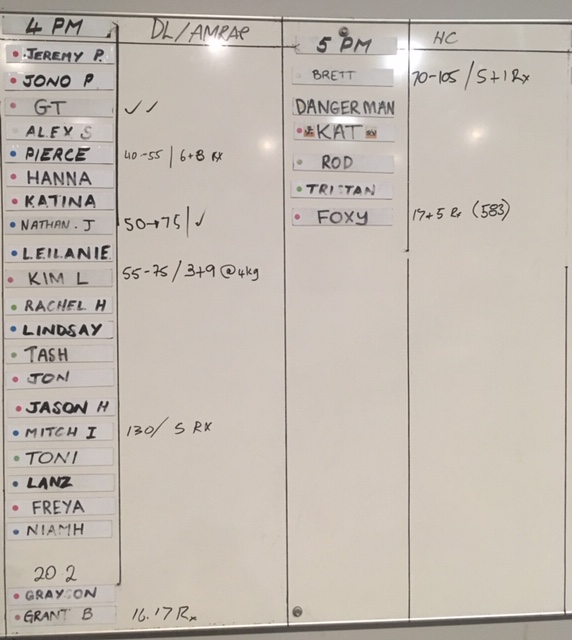 4 PM DL/AMRAP
JEREMY P.
JONO P
GT ✓✓
ALEX S
PIERCE 40-55 / 6+8 RX
HANNA
KATINA
NATHAN. J 50→75 / ✓
LEILANIE
KIM L 55-75 / 3+9 @4kg
RACHEL H
LINDSAY
TASH
JON
JASON H
MITCH I 130/ 5 RX
TONI
LANZ
FREYA
NIAMH
20 2
GRAYSON
GRANT B 16.17 Rx
5 PM HC
BRETT 70-105 / 5+1 Rx
DANGERMAN
KAT
ROD
TRISTAN
FOXY 17+5 Rx (583)